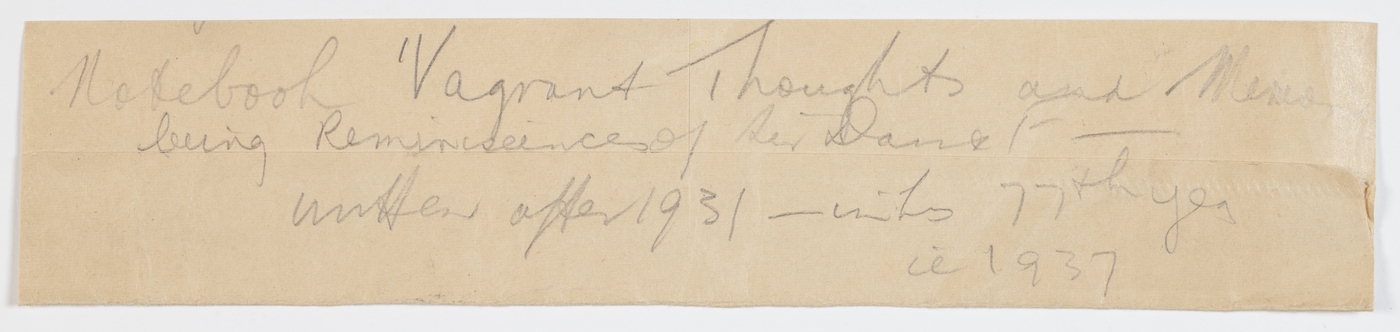 Notebook "Vagrant Thoughts and Memo
being Reminiscences of Sir Daniel —
written after 1931 — in his 77th yea
ie 1937